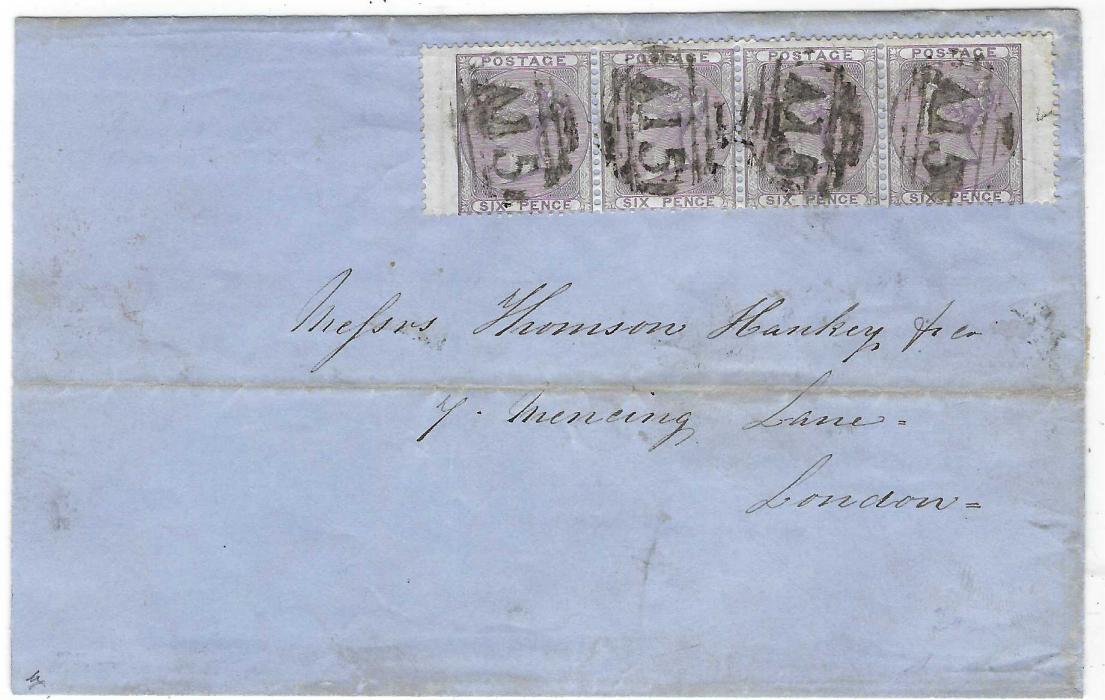 POSTAGE POSTAGE POSTAGE POSTAGE
A15 A15 A15 A15
SIX PENCE SIX PENCE SIX PENCE SIX PENCE
Messrs Thomson Hankey & Co
7. Mencing Lane=
London=